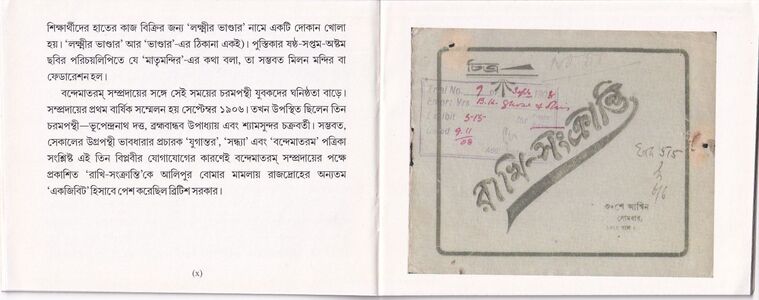 শিক্ষার্থীদের হাতের কাজ বিক্রির জন্য ‘লক্ষ্মীর ভাণ্ডার’ নামে একটি দোকান খোলা
হয়। ‘লক্ষ্মীর ভাণ্ডার’ আর ‘ভাণ্ডার’-এর ঠিকানা একই)। পুস্তিকার ষষ্ঠ-সপ্তম-অষ্টম
ছবির পরিচয়লিপিতে যে ‘মাতৃমন্দির’-এর কথা বলা, তা সম্ভবত মিলন মন্দির বা
ফেডারেশন হল।
বন্দেমাতরম্ সম্প্রদায়ের সঙ্গে সেই সময়ের চরমপন্থী যুবকদের ঘনিষ্ঠতা বাড়ে।
সম্প্রদায়ের প্রথম বার্ষিক সম্মেলন হয় সেপ্টেম্বর ১৯০৬। তখন উপস্থিত ছিলেন তিন
চরমপন্থী—ভূপেন্দ্রনাথ দত্ত, ব্রহ্মবান্ধব উপাধ্যায় এবং শ্যামসুন্দর চক্রবর্তী। সম্ভবত,
সেকালের উগ্রপন্থী ভাবধারার প্রচারক ‘যুগান্তর’, ‘সন্ধ্যা’ এবং ‘বন্দেমাতরম’ পত্রিকা
সংশ্লিষ্ট এই তিন বিপ্লবীর যোগাযোগের কারণেই বন্দেমাতরম্ সম্প্রদায়ের পক্ষে
প্রকাশিত ‘রাখি-সংক্রান্তি’কে আলিপুর বোমার মামলায় রাজদ্রোহের অন্যতম
‘একজিবিট’ হিসাবে পেশ করেছিল ব্রিটিশ সরকার।
(x)
চিত্র
No. 9 of 1908
Emper: Vrs B.K. Ghose & Others
Exhibit 515
Dated 9.11
08
রাখি-সংক্রান্তি
Exh 515
৩০শে আশ্বিন
সোমবার,